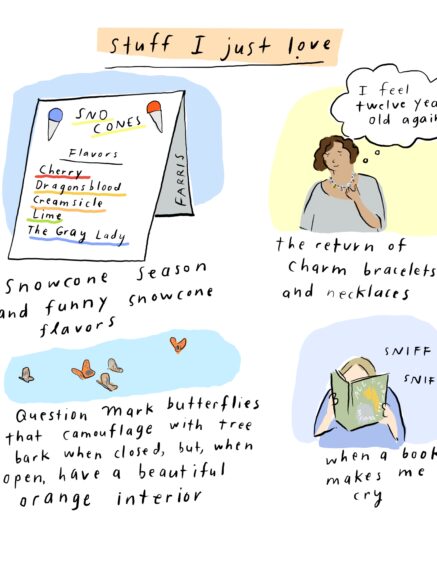 stuff I just love
SNO
CONES
Flavors
Cherry
Dragonsblood
Creamsicle
Lime
The Gray Lady
FARRIS
Snowcone season
and funny snowcone
flavors
I feel
twelve yea
old again
the return of
charm bracelets
and necklaces
Question Mark butterflies
that camouflage with tree
bark when closed, but, when
open, have a beautiful
orange interior
SNIFF
SNIF
when a book
makes me
cry